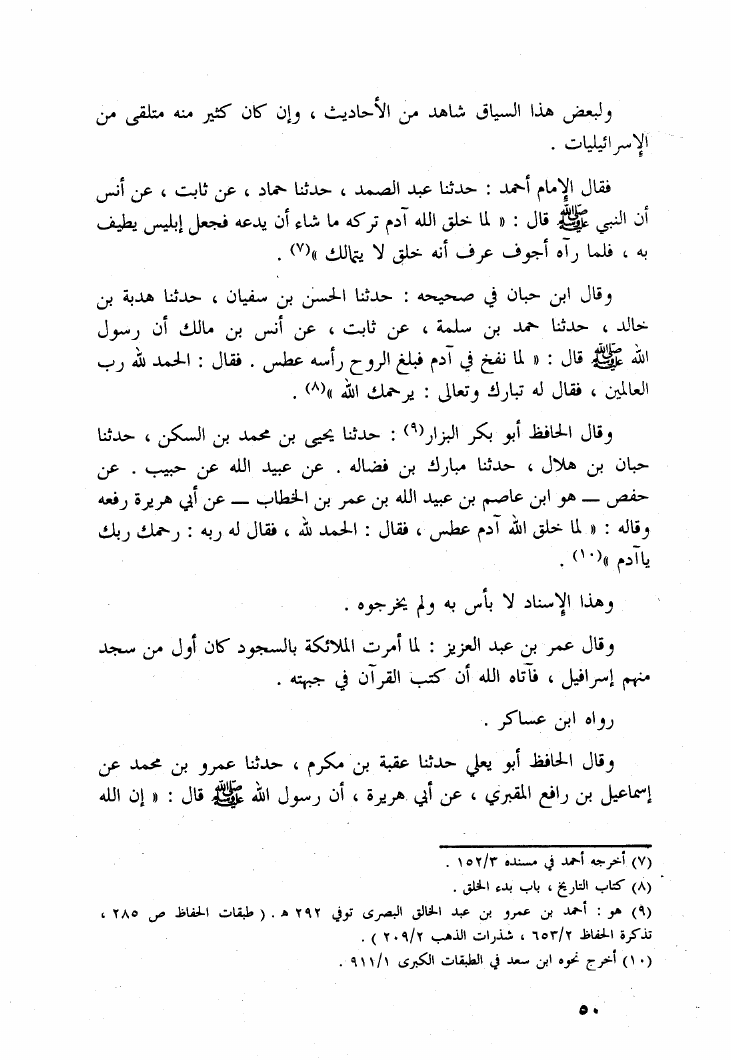 ولبعض هذا السياق شاهد من الأحاديث ، وإن كان كثير منه متلقى من
الإسرائيليات .
فقال الإمام أحمد : حدثنا عبد الصمد ، حدثنا حماد ، عن ثابت ، عن أنس
أن النبي ﷺ قال : « لما خلق الله آدم تركه ما شاء أن يدعه فجعل إبليس يطيف
به ، فلما رآه أجوف عرف أنه خلق لا يتمالك »(٧) .
وقال ابن حبان في صحيحه : حدثنا الحسن بن سفيان ، حدثنا هدبة بن
خالد ، حدثنا حمد بن سلمة ، عن ثابت ، عن أنس بن مالك أن رسول
الله ﷺ قال : « لما نفخ في آدم فبلغ الروح رأسه عطس . فقال : الحمد لله رب
العالمين ، فقال له تبارك وتعالى : يرحمك الله »(٨) .
وقال الحافظ أبو بكر البزار(٩) : حدثنا يحيى بن محمد بن السكن ، حدثنا
حبان بن هلال ، حدثنا مبارك بن فضاله . عن عبيد الله عن حبيب . عن
حفص ــ هو ابن عاصم بن عبيد الله بن عمر بن الخطاب ــ عن أبي هريرة رفعه
وقاله : « لما خلق الله آدم عطس ، فقال : الحمد لله ، فقال له ربه : رحمك ربك
ياآدم »(١٠) .
وهذا الإسناد لا بأس به ولم يخرجوه .
وقال عمر بن عبد العزيز : لما أمرت الملائكة بالسجود كان أول من سجد
منهم إسرافيل ، فآتاه الله أن كتب القرآن في جبهته .
رواه ابن عساكر .
وقال الحافظ أبو يعلي حدثنا عقبة بن مكرم ، حدثنا عمرو بن محمد عن
إسماعيل بن رافع المقبري ، عن أبي هريرة ، أن رسول الله ﷺ قال : « إن الله
(٧) أخرجه أحمد في مسنده ١٥٢/٣ .
(٨) كتاب التاريخ ، باب بدء الخلق .
(٩) هو : أحمد بن عمرو بن عبد الخالق البصرى توفي ٢٩٢ هـ . ( طبقات الحفاظ ص ٢٨٥ ،
تذكرة الحفاظ ٦٥٣/٢ ، شذرات الذهب ٢٠٩/٢ ) .
(١٠) أخرج نحوه ابن سعد في الطبقات الكبرى ٩١١/١ .
٥٠